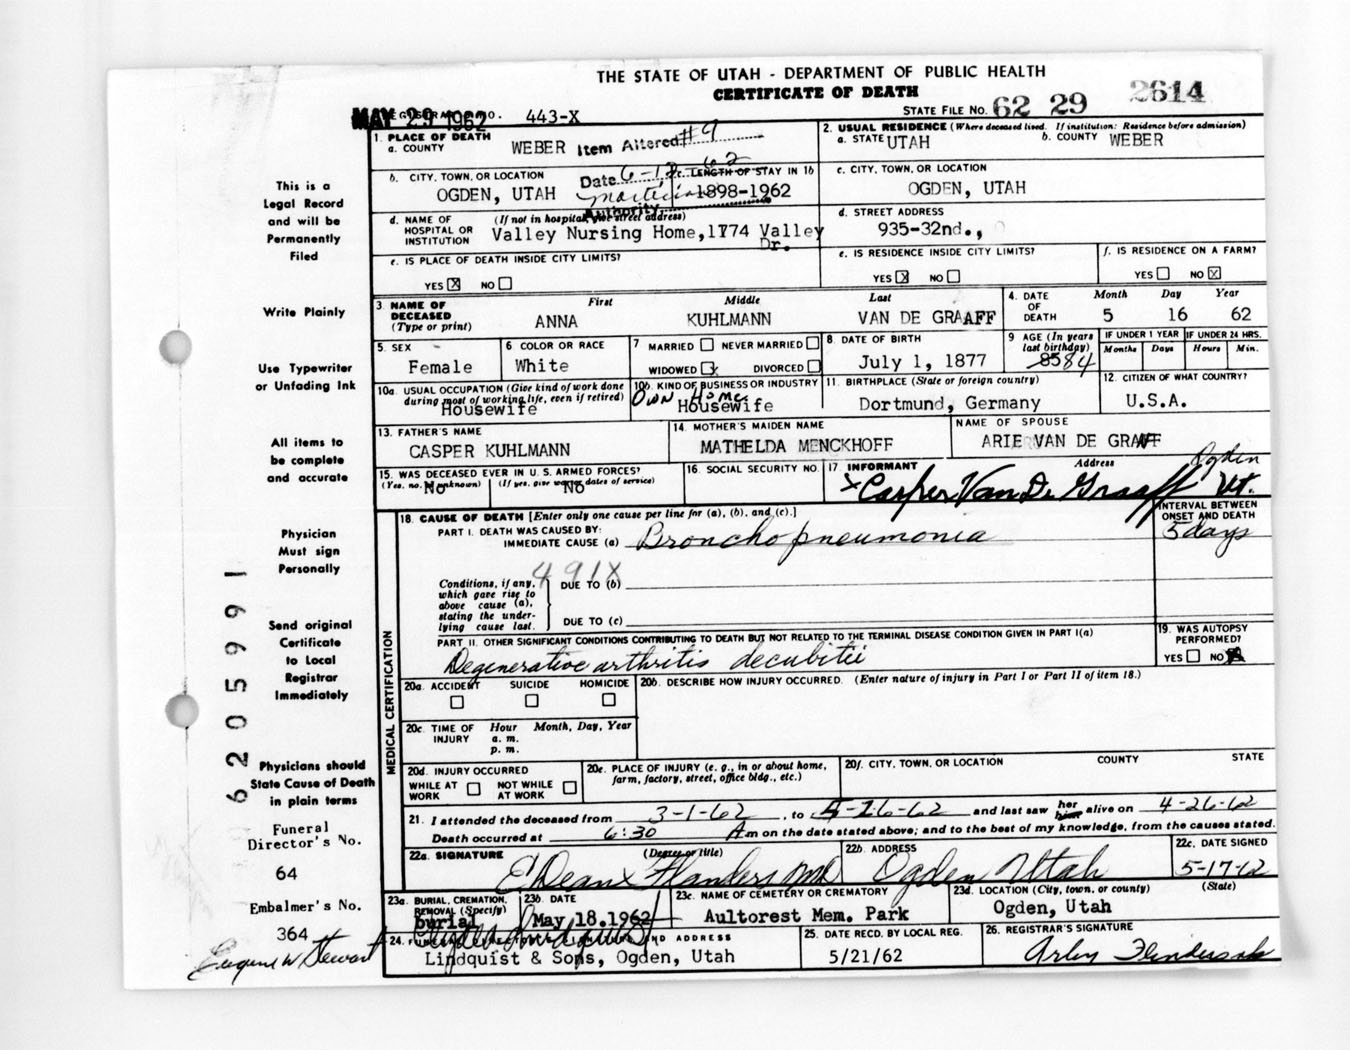 THE STATE OF UTAH - DEPARTMENT OF PUBLIC HEALTH
CERTIFICATE OF DEATH
2614
STATE FILE NO. 62 29
MAY 29 1962 443-X
1. PLACE OF DEATH
a. COUNTY WEBER
Item Altered #9
Date 6-12-62
Authority
2. USUAL RESIDENCE (Where deceased lived. If institution: Residence before admission)
a. STATE UTAH b. COUNTY WEBER
b. CITY, TOWN, OR LOCATION
OGDEN, UTAH
c. LENGTH OF STAY IN 1b
1898-1962
c. CITY, TOWN, OR LOCATION
OGDEN, UTAH
d. NAME OF HOSPITAL OR INSTITUTION (If not in hospital, give street address)
Valley Nursing Home, 1774 Valley Dr.
d. STREET ADDRESS
935-32nd.,
e. IS PLACE OF DEATH INSIDE CITY LIMITS?
YES X NO
e. IS RESIDENCE INSIDE CITY LIMITS?
YES X NO
f. IS RESIDENCE ON A FARM?
YES NO X
3. NAME OF DECEASED (Type or print) First Middle Last
ANNA KUHLMANN VAN DE GRAAFF
4. DATE OF DEATH Month Day Year
5 16 62
5. SEX
Female
6. COLOR OR RACE
White
7 MARRIED NEVER MARRIED
WIDOWED X DIVORCED
8. DATE OF BIRTH
July 1, 1877
9 AGE (In years last birthday)
85 84
IF UNDER 1 YEAR IF UNDER 24 HRS.
Months Days Hours Min.
10a. USUAL OCCUPATION (Give kind of work done during most of working life, even if retired)
Housewife
10b. KIND OF BUSINESS OR INDUSTRY
Own Home
Housewife
11. BIRTHPLACE (State or foreign country)
Dortmund, Germany
12. CITIZEN OF WHAT COUNTRY?
U.S.A.
13. FATHER'S NAME
CASPER KUHLMANN
14. MOTHER'S MAIDEN NAME
MATHELDA MENCKHOFF
NAME OF SPOUSE
ARIE VAN DE GRAFF
15. WAS DECEASED EVER IN U. S. ARMED FORCES?
(Yes, no, or unknown) (If yes, give war or dates of service)
No No
16. SOCIAL SECURITY NO.
17. INFORMANT Address
x Casper Van De Graaff Ogden Ut.
18. CAUSE OF DEATH [Enter only one cause per line for (a), (b), and (c).]
INTERVAL BETWEEN ONSET AND DEATH
PART I. DEATH WAS CAUSED BY:
IMMEDIATE CAUSE (a) Bronchopneumonia 5 days
491X
Conditions, if any, which gave rise to above cause (a), stating the underlying cause last.
DUE TO (b)
DUE TO (c)
PART II. OTHER SIGNIFICANT CONDITIONS CONTRIBUTING TO DEATH BUT NOT RELATED TO THE TERMINAL DISEASE CONDITION GIVEN IN PART I(a)
Degenerative arthritis decubitii
19. WAS AUTOPSY PERFORMED?
YES NO X
20a. ACCIDENT SUICIDE HOMICIDE
20b. DESCRIBE HOW INJURY OCCURRED. (Enter nature of injury in Part I or Part II of item 18.)
20c. TIME OF INJURY Hour Month, Day, Year
a. m.
p. m.
20d. INJURY OCCURRED
WHILE AT WORK NOT WHILE AT WORK
20e. PLACE OF INJURY (e. g., in or about home, farm, factory, street, office bldg., etc.)
20f. CITY, TOWN, OR LOCATION COUNTY STATE
MEDICAL CERTIFICATION
21. I attended the deceased from 3-1-62, to 5-16-62 and last saw her him alive on 4-26-62
Death occurred at 6:30 A m on the date stated above; and to the best of my knowledge, from the causes stated.
22a. SIGNATURE (Degree or title)
22b. ADDRESS
Ogden Utah
22c. DATE SIGNED
5-17-62
23a. BURIAL, CREMATION, REMOVAL (Specify)
burial
23b. DATE
May 18, 1962
23c. NAME OF CEMETERY OR CREMATORY
Aultorest Mem. Park
23d. LOCATION (City, town, or county) (State)
Ogden, Utah
24. AND ADDRESS
Lindquist & Sons, Ogden, Utah
25. DATE RECD. BY LOCAL REG.
5/21/62
26. REGISTRAR'S SIGNATURE
This is a
Legal Record
and will be
Permanently
Filed
Write Plainly
Use Typewriter
or Unfading Ink
All items to
be complete
and accurate
Physician
Must sign
Personally
Send original
Certificate
to Local
Registrar
Immediately
Physicians should
State Cause of Death
in plain terms
Funeral
Director's No.
64
Embalmer's No.
364
Eugene W Stewart
6205991